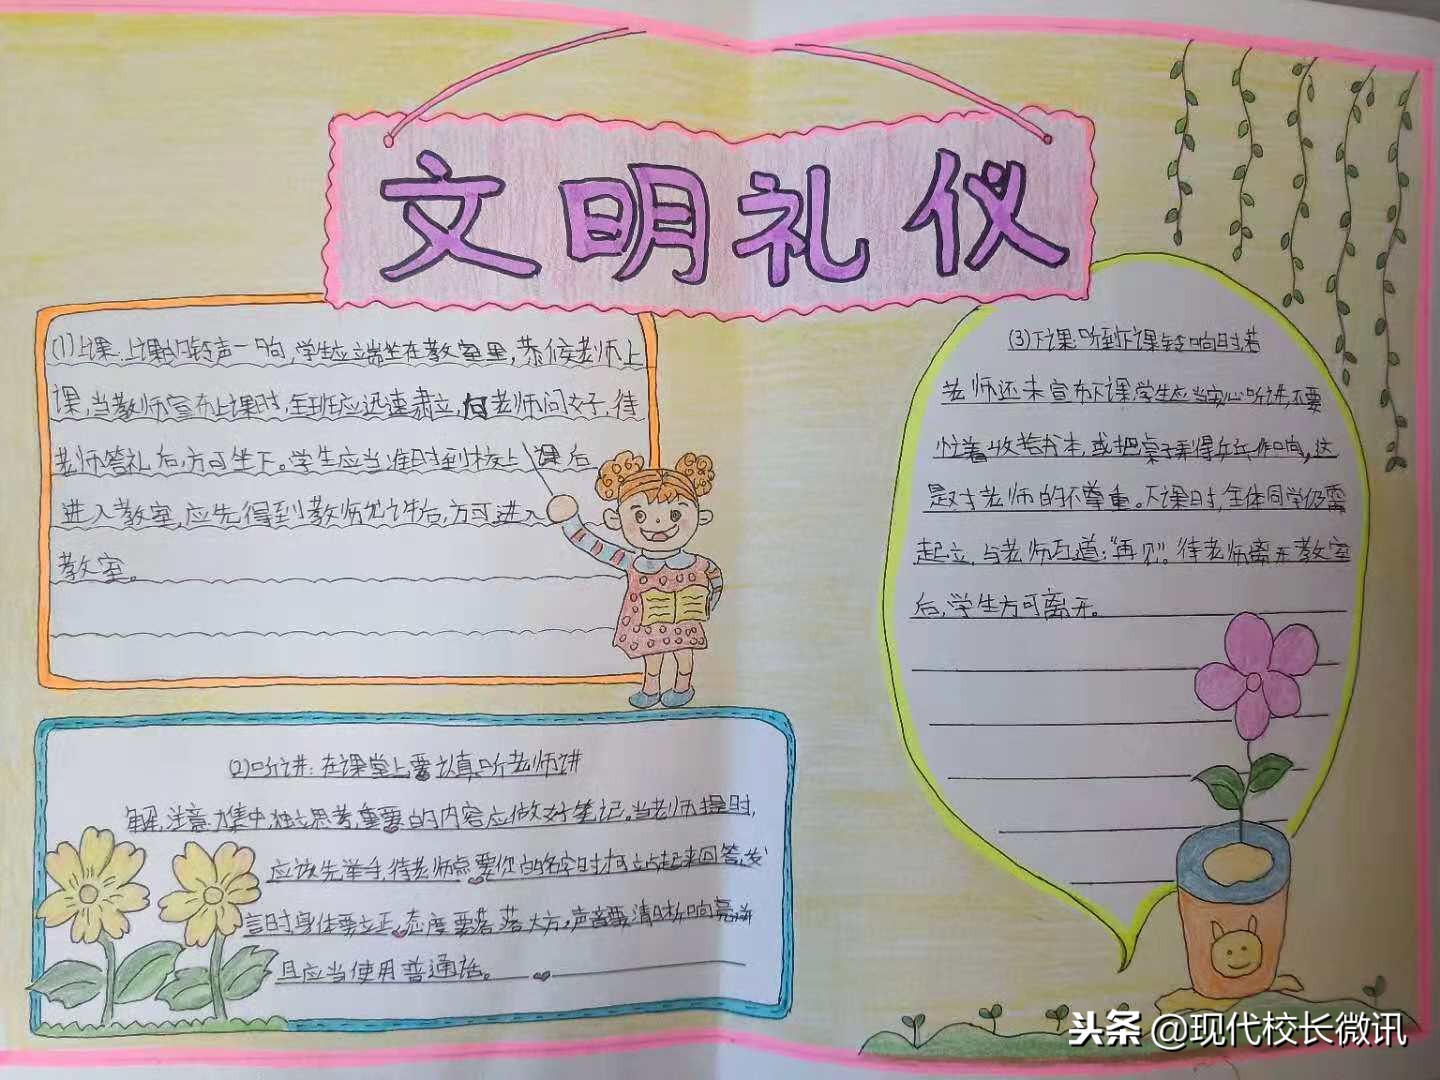 文明礼仪
(1)上课:上课的铃声一响,学生应端坐在教室里,恭候老师上
课,当教师宣布上课时,全班应迅速肃立,向老师问好,待
老师答礼后,方可坐下。学生应当准时到校上课后
进入教室,应先得到教师允许后,方可进入
教室。
(2)听讲:在课堂上要认真听老师讲
解,注意力集中,独立思考,重要的内容应做好笔记。当老师提时,
应该先举手,待老师点要你的名字时才可站起来回答,发
言时,身体要立正,态度要落落大方,声音要清晰响亮,并
且应当使用普通话。
(3)下课:听到下课铃响时,若
老师还未宣布下课,学生应当安心听讲,不要
忙着收拾书本,或把桌子弄得乒乓作响,这
是对老师的不尊重。下课时,全体同学仍需
起立,与老师互道:“再见”。待老师离开教室
后,学生方可离开。
头条 @现代校长微讯